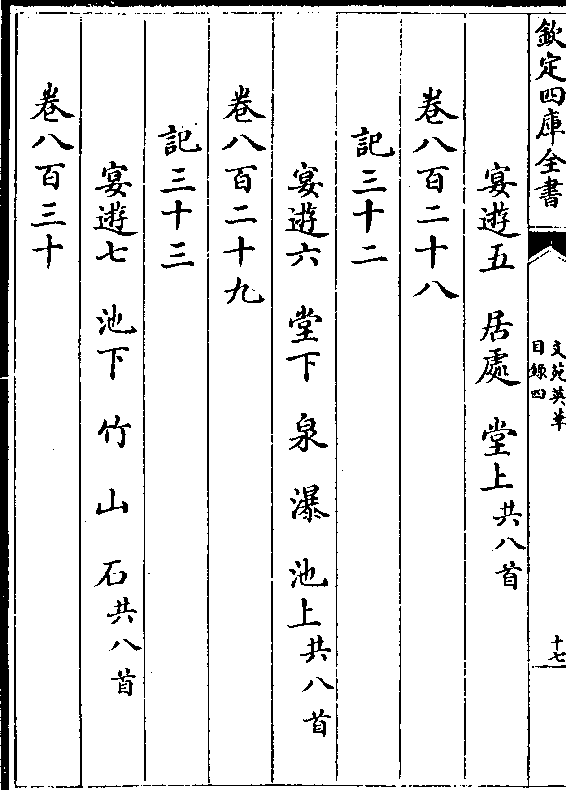 欽定四庫全書
文苑英華
目録四
十七
宴遊五　居處　堂上共八首
卷八百二十八
記三十二
宴遊六　堂下　泉　瀑　池上共八首
卷八百二十九
記三十三
宴遊七　池下　竹　山　石共八首
卷八百三十